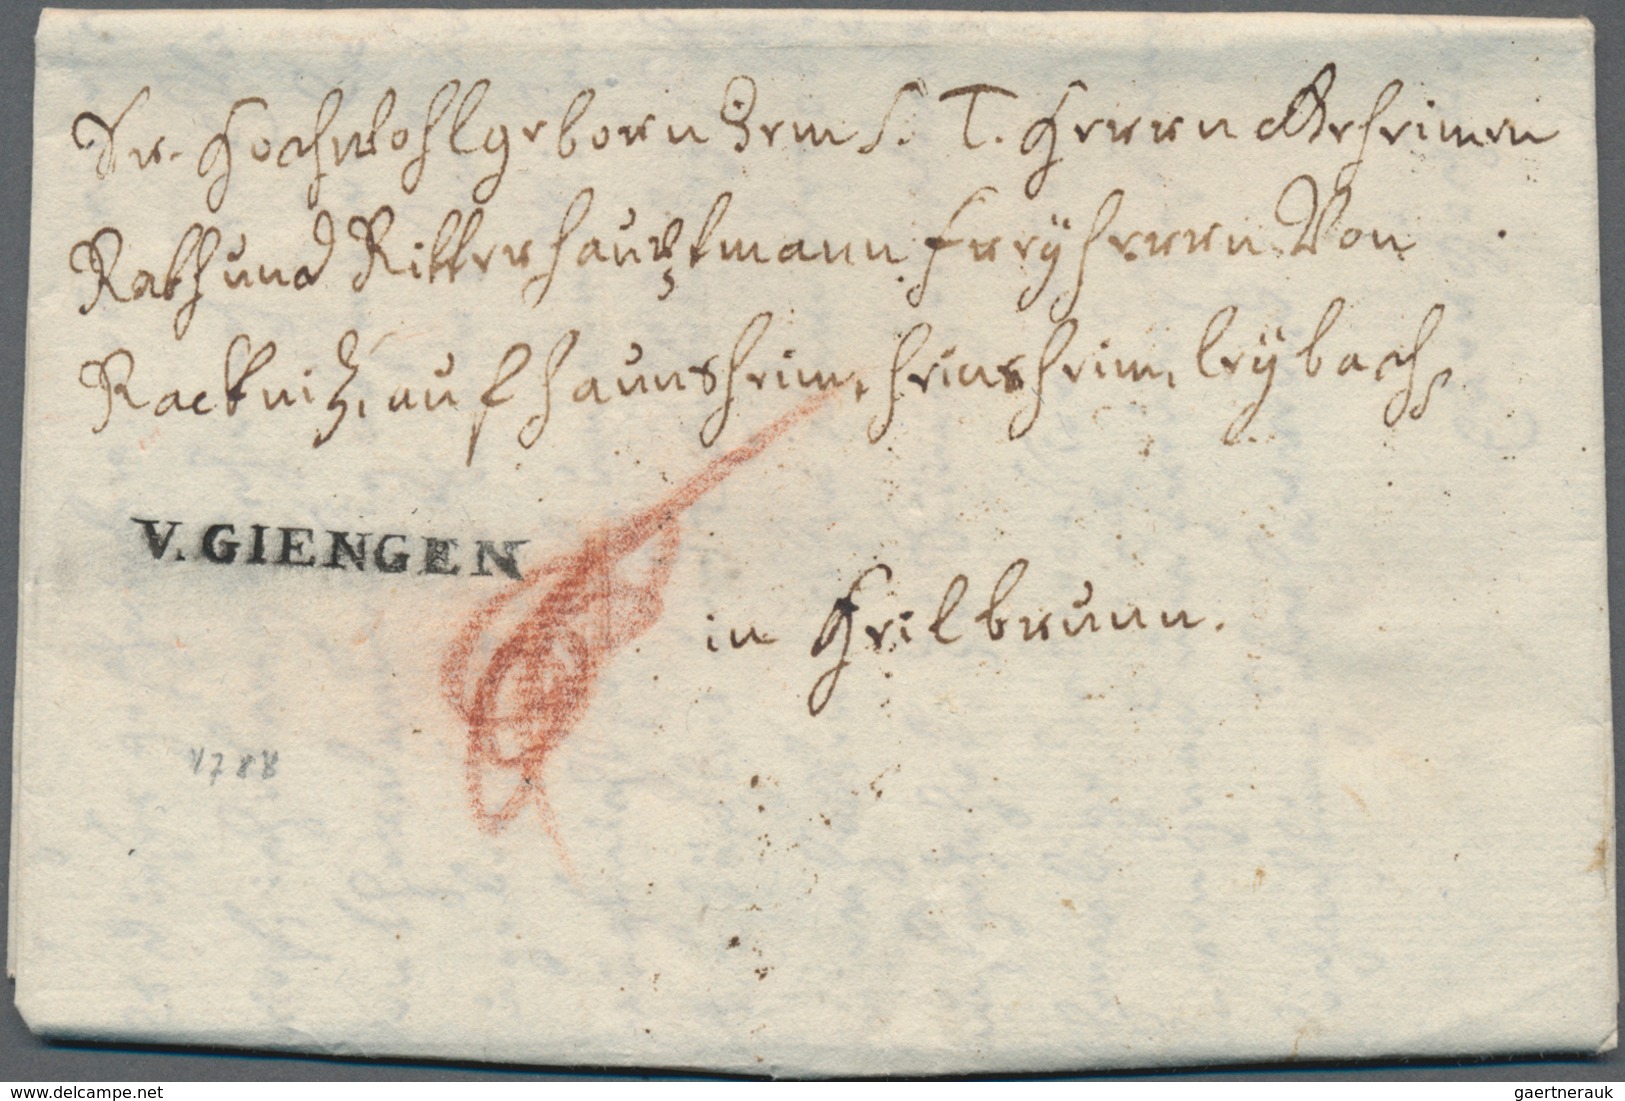 Sr. Hochwohlgeborn dem S. T. Herrn Geheimen
Rath und Ritterhauptmann Freyherrn Von
Racknitz, auf haunsheim, heinsheim, leybach,
V. GIENGEN
in Heilbrunn.
1788
www.delcampe.net
gaertnerauk